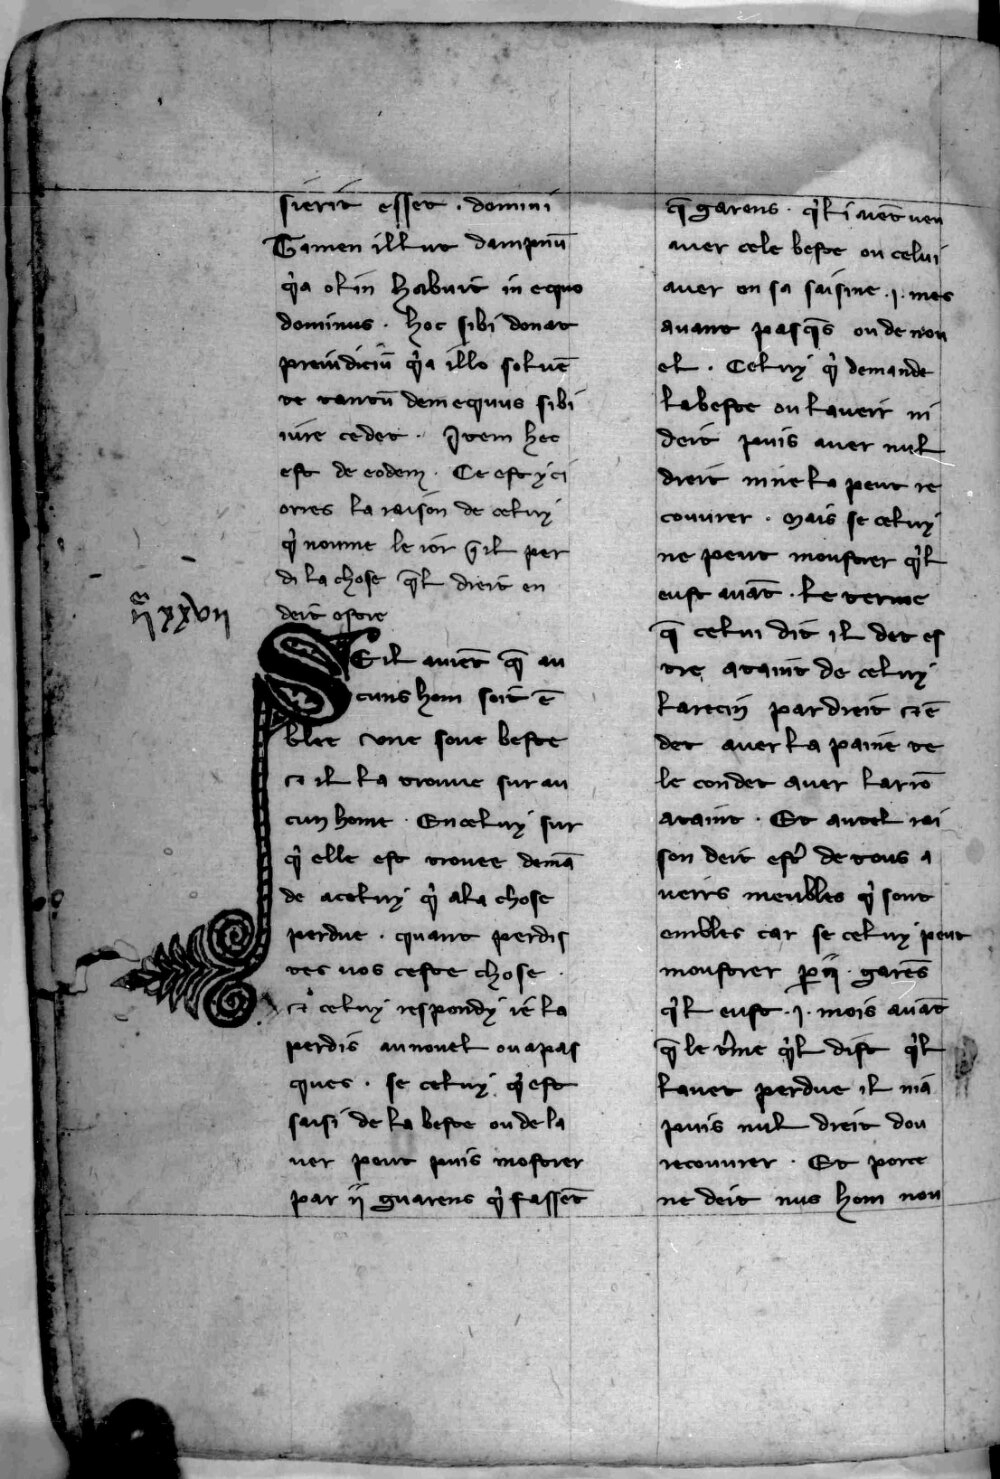 sierit esset . domini
Tamen illut dampnũ
q̉a olim habuit in equo
dominus . hoc sibi donat
preiudiciũ q̉a illo soluẽ
te tantũ dem equus sibi
iure cedet . Item hec
est de eodem . Ce est yci
orres la raison de celuy
q̉ noume le ior q̃il per
di la chose q̃l dreit en
deit estre
ccxxvii
SE il auient q̃ au
cuns hom soit ẽ
blee vne soue beste
et il la trouue sur au
cun home . Enceluy sur
q̉ elle est trouee demã
de a celuy q̉ a la chose
perdue . quant perdis
tes uos ceste chose .
et celuy respondy ie la
perdis au nouel ou a pas
ques . se celuy q̉ est
saisi de la beste ou de la
uer peut puis mostrer
par ii guarens q̉ fassẽt
q̃ garens . q̉l i auet ueu
auer cele beste ou celui
auer en sa saisine .i. mes
auant pasq̃s ou de nou
el . Celuy q̉ demande
la beste ou laueir ni
deit puis auer nul
dreit ni ne la peut re
couurer . Mais se celuy
ne peut moustrer q̉l
eust auãt . le terme
q̃ celui dit il det es
tre ataint de celuy
larecin par dreit et ẽ
det auer la paine te
le con det auer larrõ
ataint . Et autel rai
son deit estr̉ de tous a
ueirs meubles q̉ sont
embles car se celuy peut
moustrer p̲ ii . garẽs
q̉l eust .i. mois auãt
q̃ le t̉me q̉l dist q̉l
lauet perdue il ni a
puis nul dreit dou
recouurer . Et porce
ne deit nus hom nou